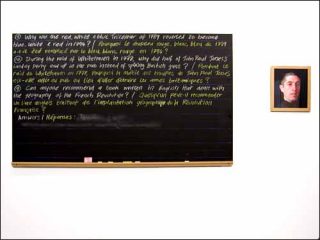 Why was the red, white & blue Tricolor of 1789 reversed to become
blue, white & red in 1794? / Pourquoi le drapeau rouge, blanc, bleu de 1789
a-t-il été renversé par le bleu blanc rouge en 1794?
During the raid of Whitehaven in 1778, why did half of John Paul Jones's
landing party end up in the pub instead of spiking British guns? / Pendant le
raid de Whitehaven en 1778, pourquoi la moitié des troupes de John Paul Jones
est-elle allée au pub au lieu les canons britanniques?
Can anyone recommend a book written in English that deals with
the geography of the French Revolution? / Quelqu'un peut-il recommander
un livre anglais traitant de l'implantation géographique de la Révolution
Française?
Answers / Réponses: